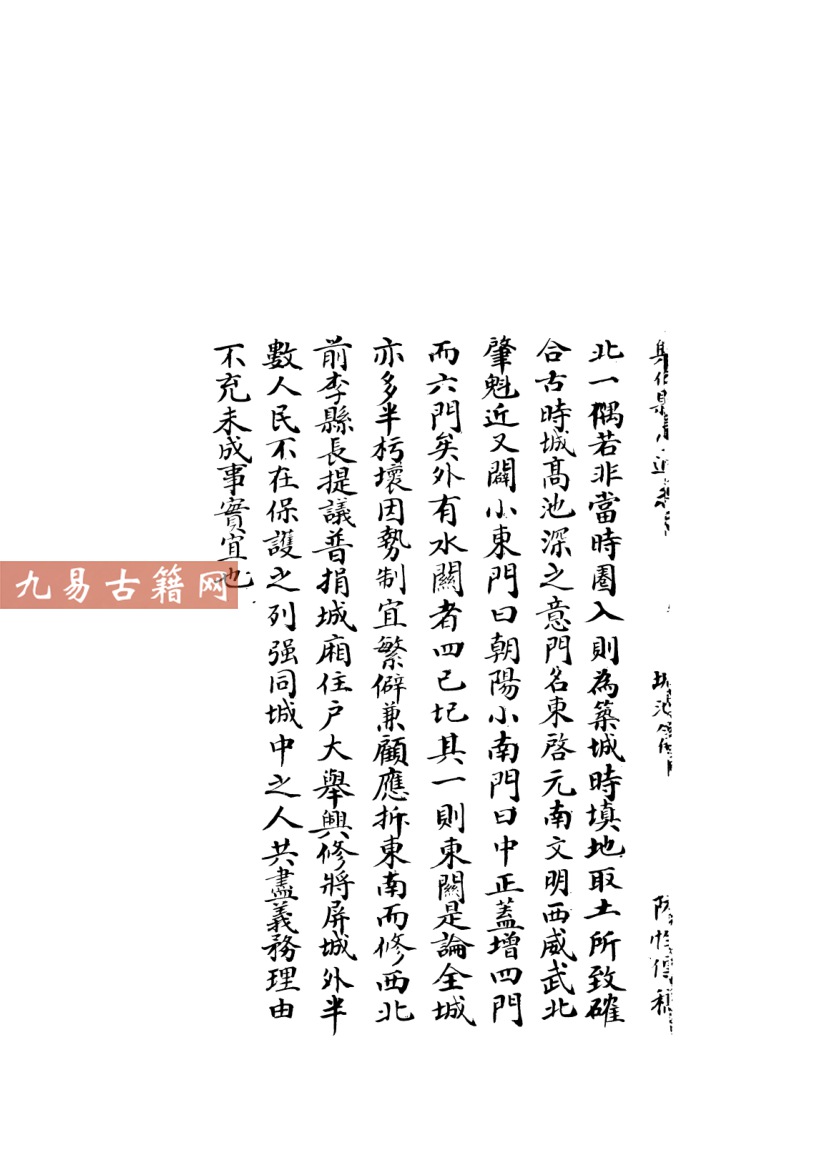 北一隅若非當時圈入則為築城時填地取土所致確
合古時城高池深之意門名東啓元南文明西威武北
肇魁近又闢小東門曰朝陽小南門曰中正蓋增四門
而六門矣外有水關者四已圮其一則東關是論全城
亦多半朽壞因勢制宜繁僻兼顧應拆東南而修西北
前李縣長提議普捐城廂住戶大舉興修將屏城外半
數人民不在保護之列强同城中之人共盡義務理由
不充未成事實宜也
九易古籍网